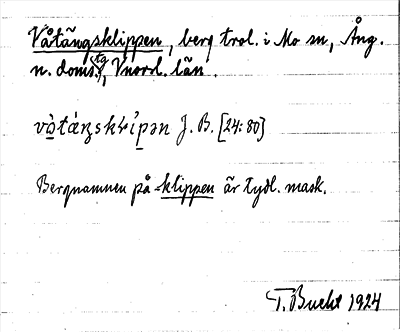 Våtängsklippen, berg trol. i Mo sn, Ång.
n. doms.tg, Vnorrl. län.
vò̱táŋsklípən J. B. [24:80]
Bergnamnen på -klippen är tydl. mask.
T. Bucht 1924